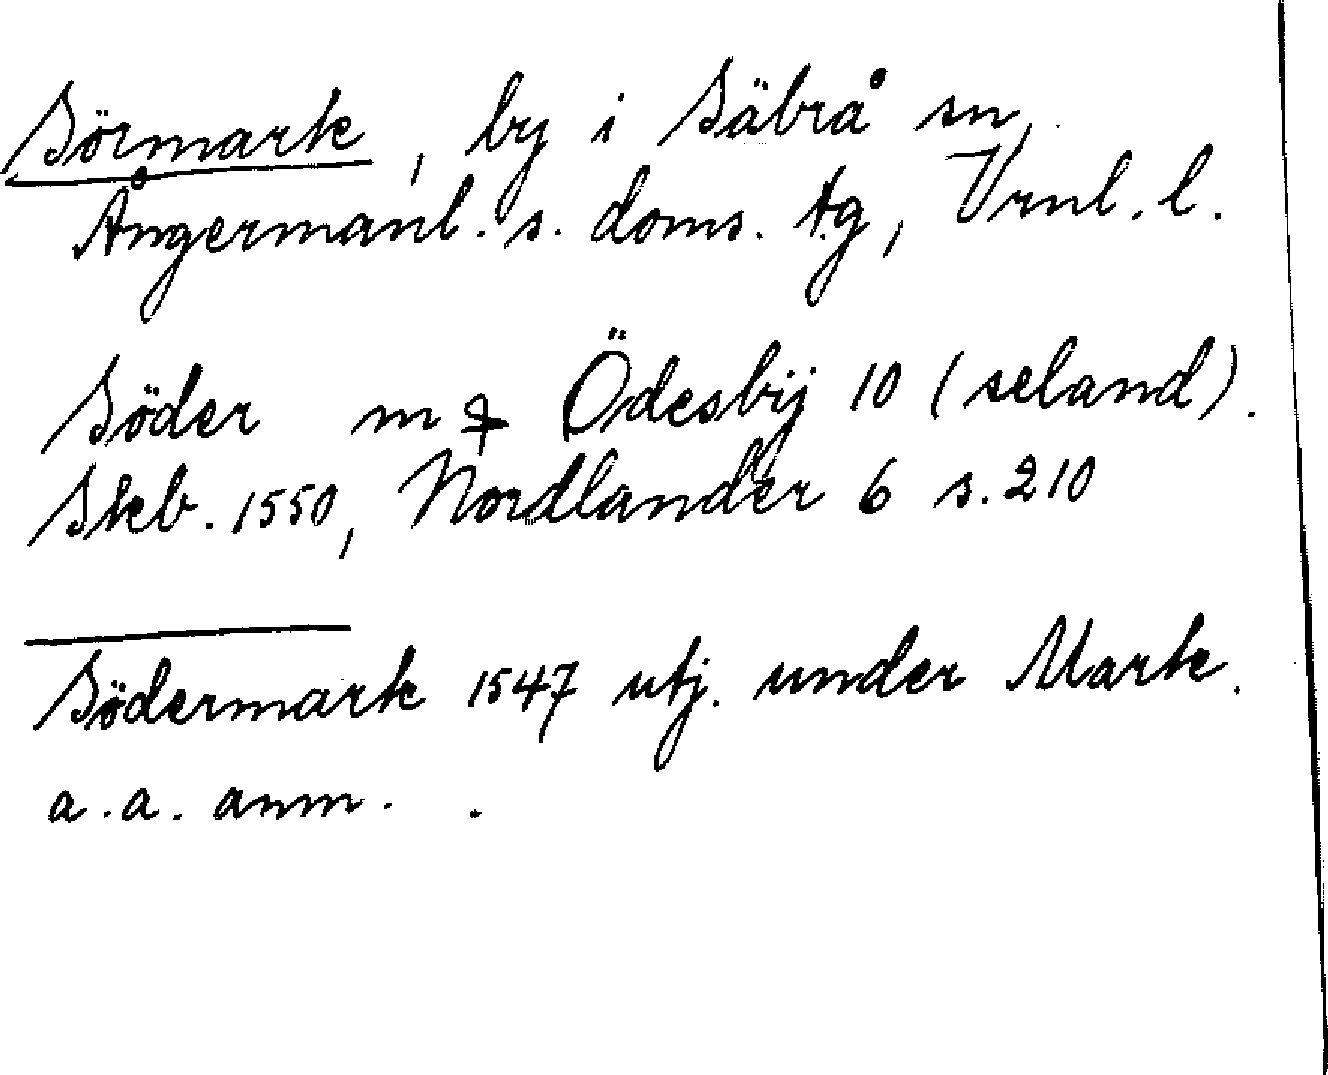 Sörmark, by i Säbrå sn,
Ångermanl. s. doms. tg, Vrnl. l.
Söder m Ödesbÿ 10 (seland).
Skb. 1550, Nordlander 6 s. 210
Södermark 1547 utj. under Mark.
a. a. anm.